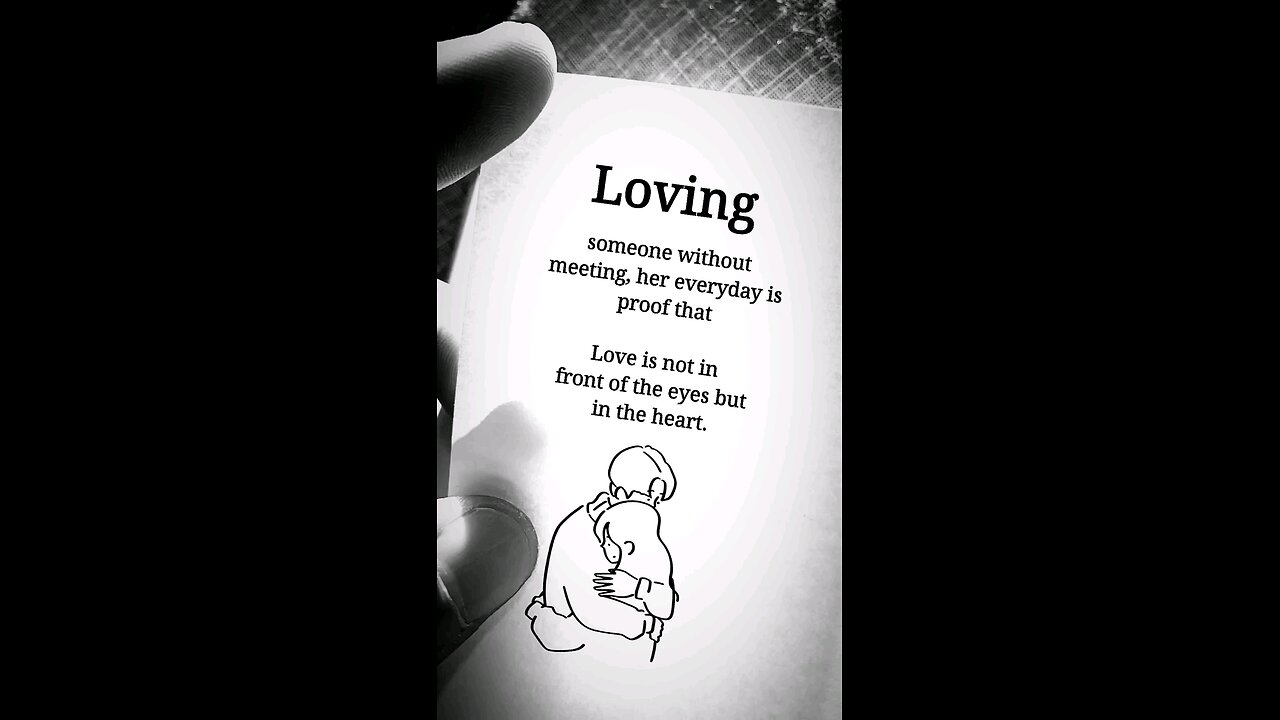 Loving
someone without
meeting, her everyday is
proof that
Love is not in
front of the eyes but
in the heart.